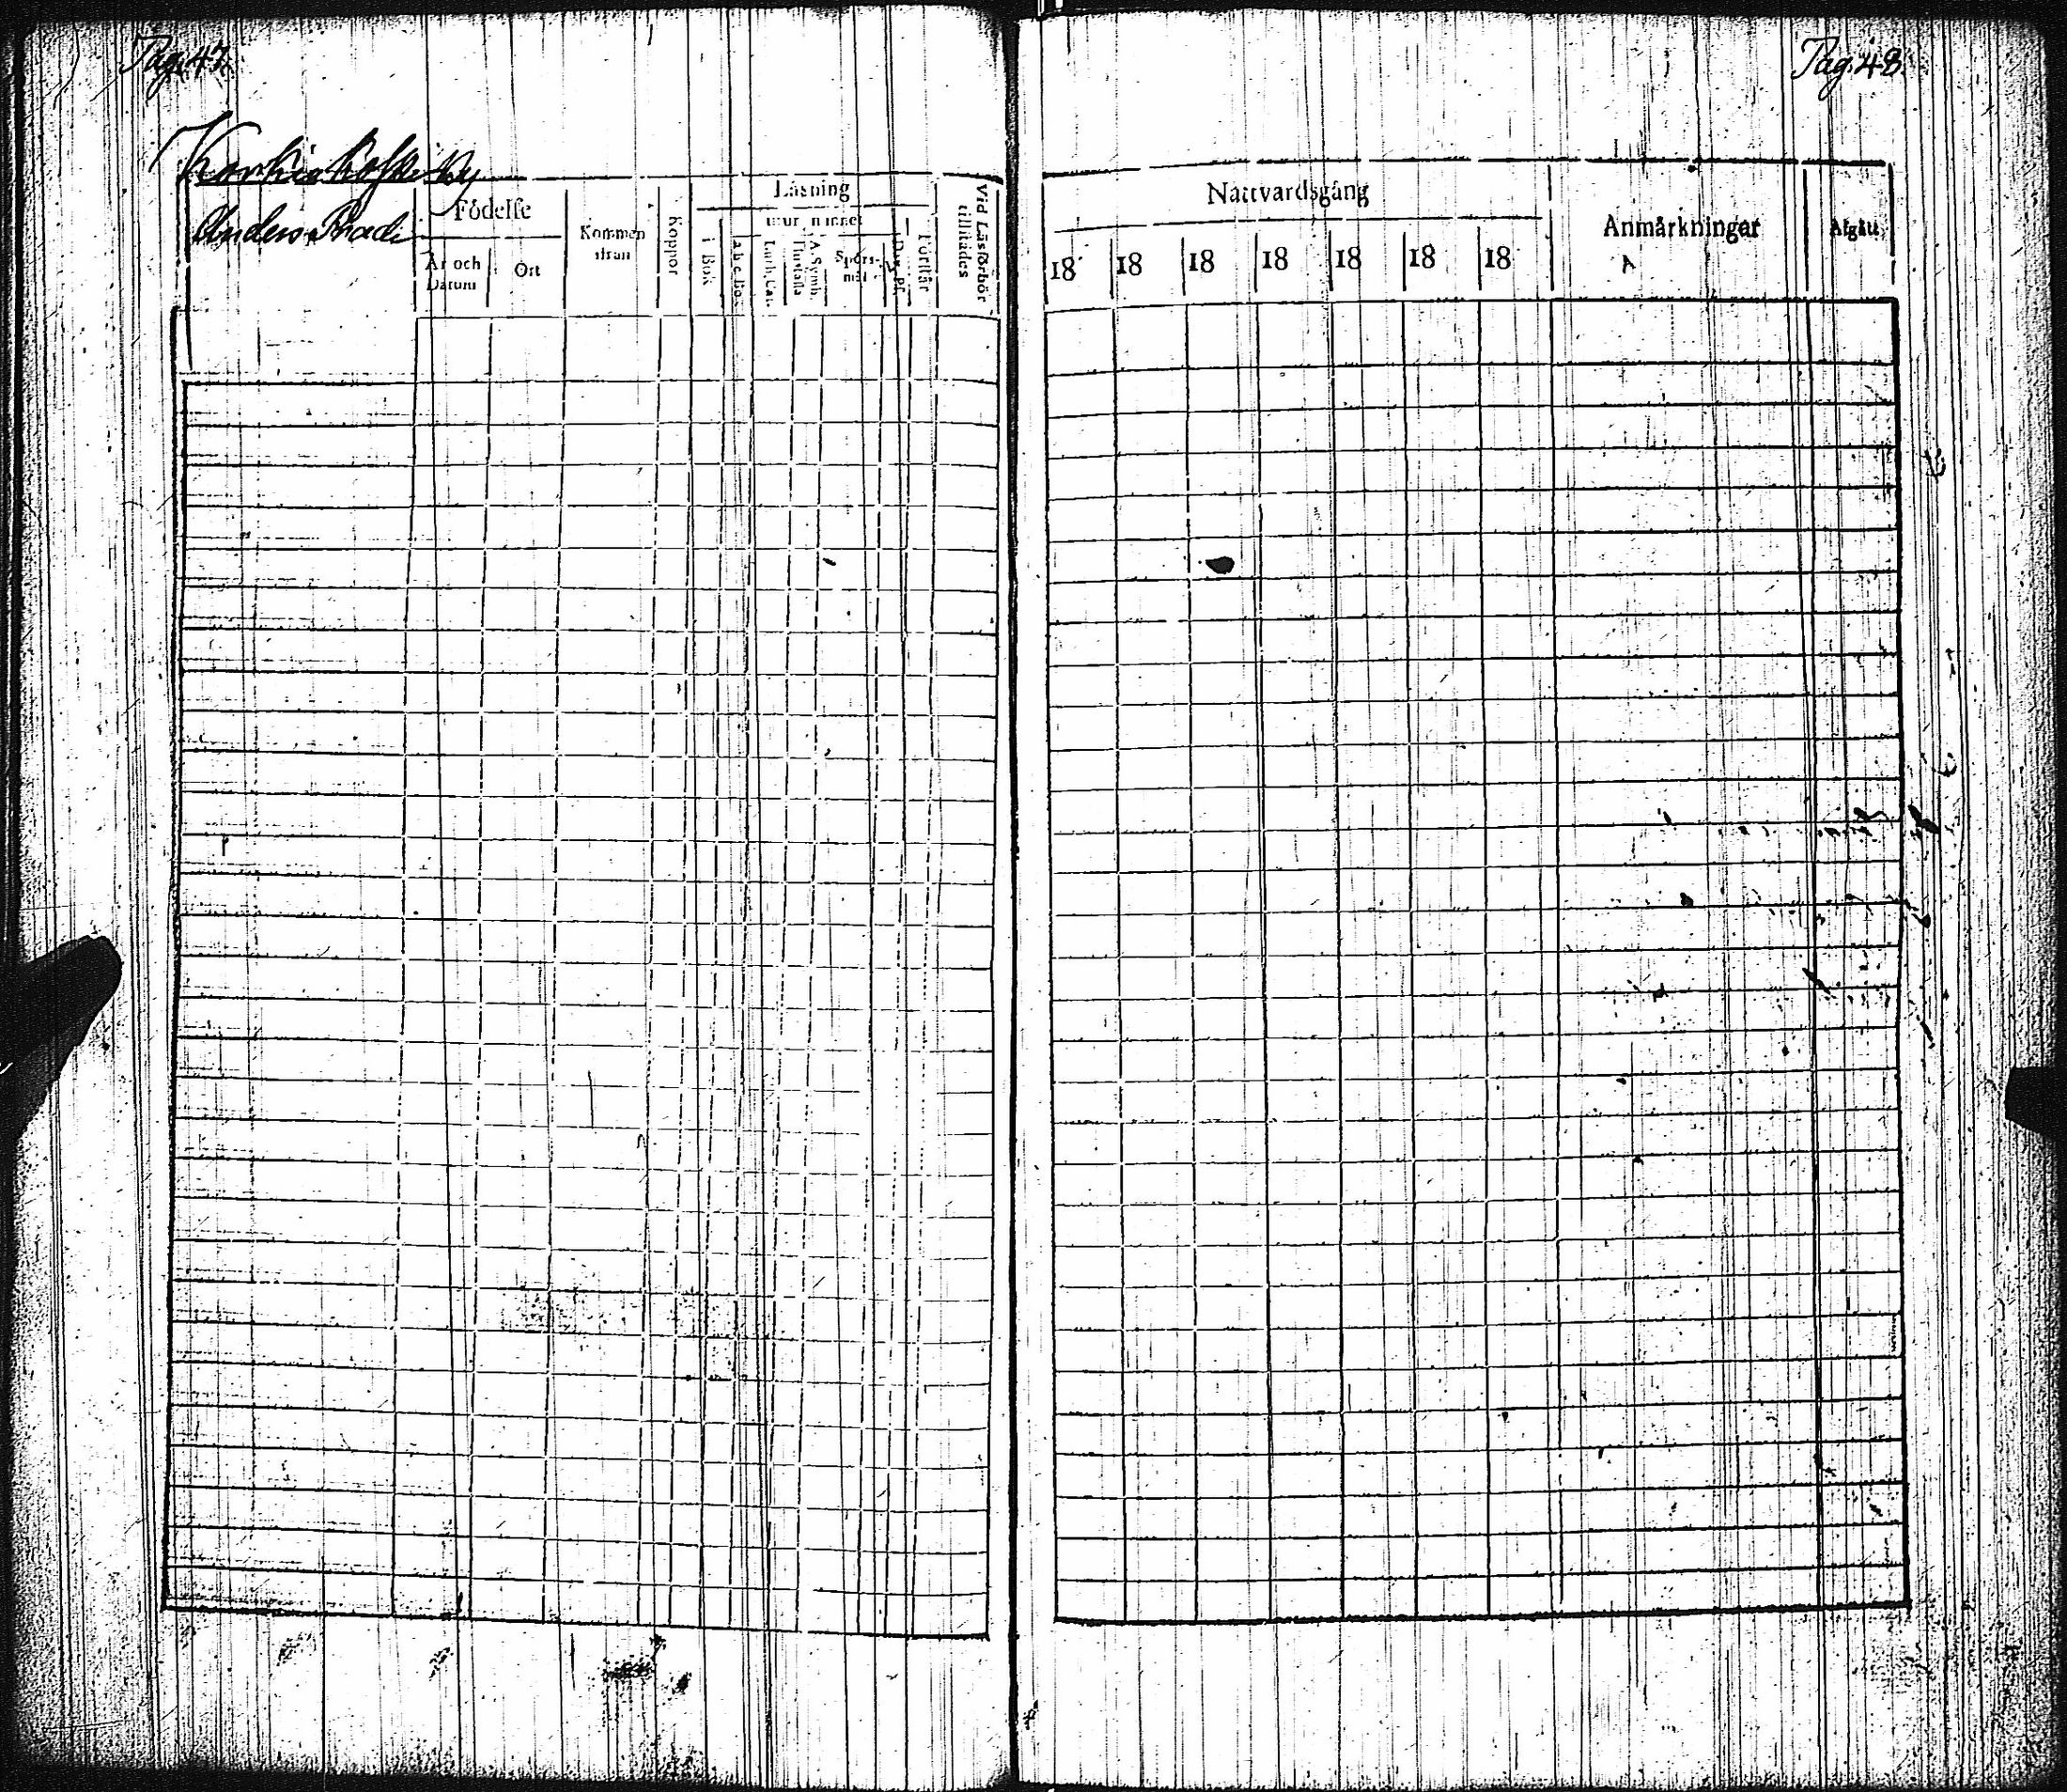 Pag. 47.
Korkiakoski By
Anders Pradi
Födelse
År och Datum
Ort
Kommen ifrån
Koppor
Läsning
i Bok
utur minnet
a b c Bo.
Luth. Cat.
Hustafla
A. Symb.
Spörsmål
Dav. Ps.
Förstår
Vid Läsförhör tillstädes
Pag. 48.
Nattvardsgång
18 18 18 18 18 18 18
Anmärkningar
Afgått